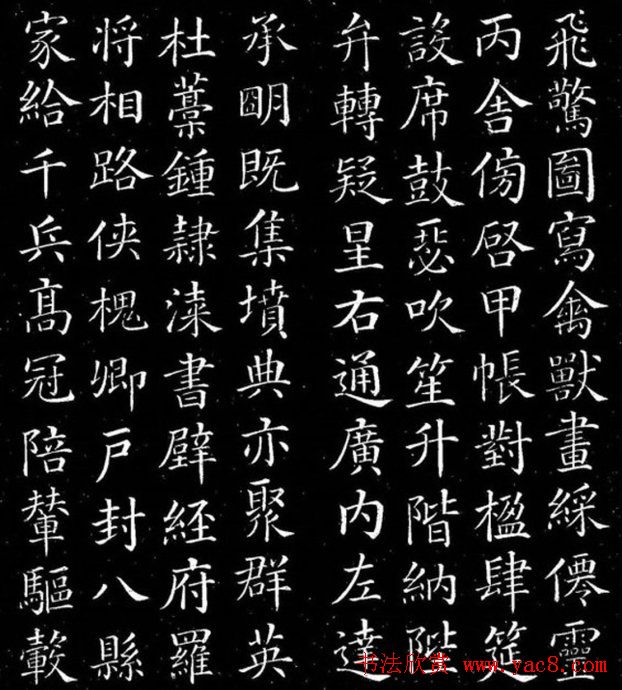 飛驚圖寫禽獸畫綵僊靈
丙舍傍啓甲帳對楹肆筵
設席鼓瑟吹笙升階納陛
弁轉疑星右通廣内左達
承朙既集墳典亦聚群英
杜藁鍾隸漆書壁経府羅
将相路俠槐卿户封八縣
家給千兵髙冠陪輦驅轂
书法欣赏 www.yac8.com